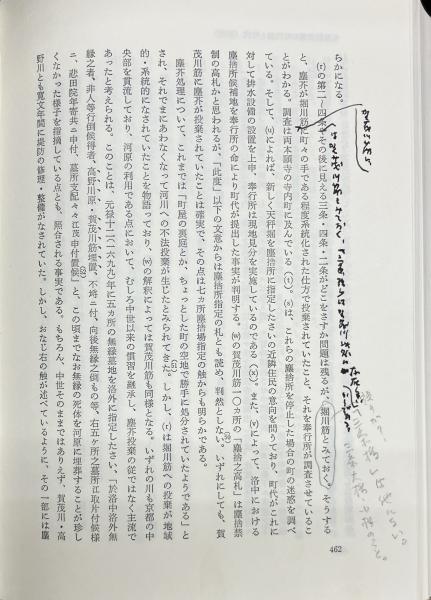 ちかになる。
(r)の第二～四条やその後に見える三条・四条・二条がどこをさすか問題は残るが、(堀川筋とみておく)、そうする
と、塵芥が堀川筋に町々の手である程度系統化された仕方で投棄されていたこと、それを奉行所が調査させているこ
とがわかる。調査は両本願寺の寺内町に及んでいる(t)。(s)は、これらの塵捨所を停止した場合の町の迷惑を調べ
ている。そして、(u)によれば、新しく天秤堀を塵捨所に指定したさいの近隣住民の意向を問うており、町代がこれに
対して排水設備の設置を上申、奉行所は現地見分を実施しているのである(x)。また、(v)によって、洛中における
塵捨所候補地を奉行所の命により町代が提出した事実が判明する。(w)の賀茂川筋一〇カ所の「塵捨之高札」は塵捨禁
制の高札かと思われるが、「此度」以下の文意からは塵捨所指定の札とも読め、判然としない。いずれにしても、賀
茂川筋に塵芥が投棄されていたことは確実で、その点は七ヵ所塵捨場指定の触からも明らかである。
塵芥処理について、これまでは「町屋の裏庭とか、ちょっとした町の空地で勝手に処分されていたようである」と
され、それでまにあわなくなって河川への不法投棄が生じたとみられてきた。しかし、(r)は堀川筋への投棄が地域
的・系統的になされていたことを物語っており、(w)の解釈によっては賀茂川筋も同様となる。いずれの川も京都の中
央部を貫流しており、河原の利用である点において、むしろ中世以来の慣習を継承し、塵芥投棄の従ではなく主流で
あったと考えられる。このことは、元禄十二(一六九九)年に五ヵ所の無縁墓地を洛外に指定したさい、「於洛中洛外無
縁之者、非人等行倒候得者、高野川原・賀茂川筋埋置、不埒ニ付、向後無縁之倒もの等、右五ヶ所之墓所江取片付候様
ニ、悲田院年寄共ニ申付、墓所支配々々江茂申付置候」と、この頃までなお無縁の死体を河原に埋葬することが珍し
くなかった様子を指摘している点とも、照合される事実である。もちろん、中世そのままではありえず、賀茂川・高
野川とも寛文年間に堤防の修理・整備がなされていた。しかし、おなじ右の触が述べているように、その一部には塵
462